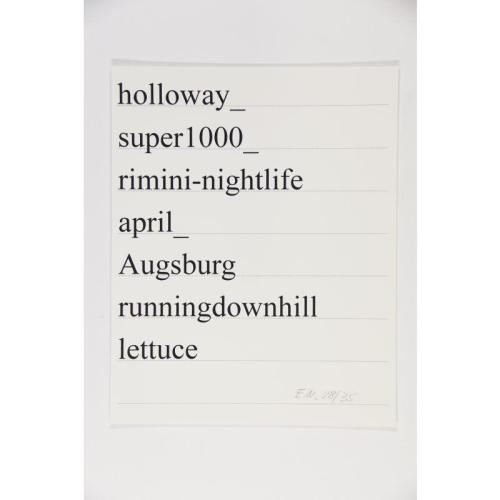 holloway_
super1000_
rimini-nightlife
april_
Augsburg
runningdownhill
lettuce